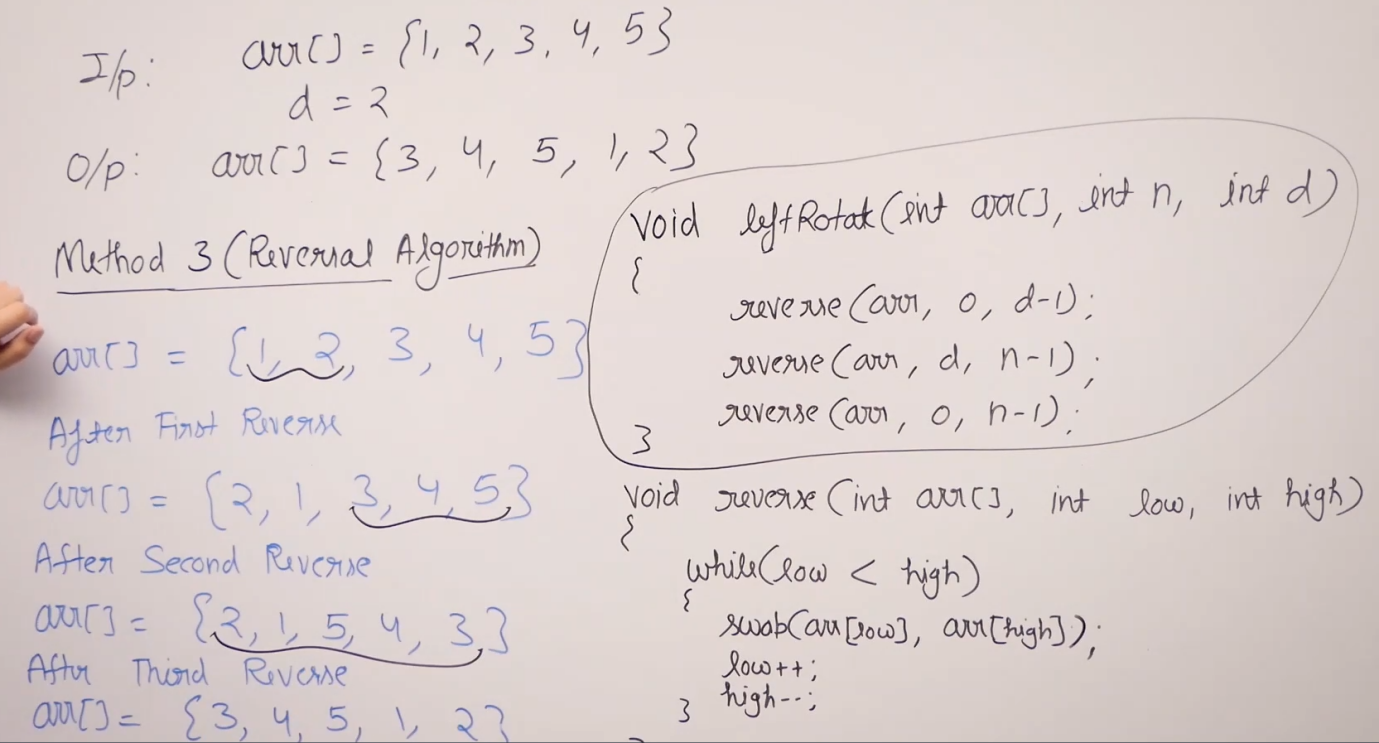 I/p: arr[] = {1, 2, 3, 4, 5}
d = 2
O/p: arr[] = {3, 4, 5, 1, 2}
Method 3 (Reversal Algorithm)
arr[] = {1, 2, 3, 4, 5}
After First Reverse
arr[] = {2, 1, 3, 4, 5}
After Second Reverse
arr[] = {2, 1, 5, 4, 3}
After Third Reverse
arr[] = {3, 4, 5, 1, 2}
void leftRotate(int arr[], int n, int d)
{
reverse(arr, 0, d-1);
reverse(arr, d, n-1);
reverse(arr, 0, n-1);
}
void reverse(int arr[], int low, int high)
{
while(low < high)
{
swap(arr[low], arr[high]);
low++;
high--;
}